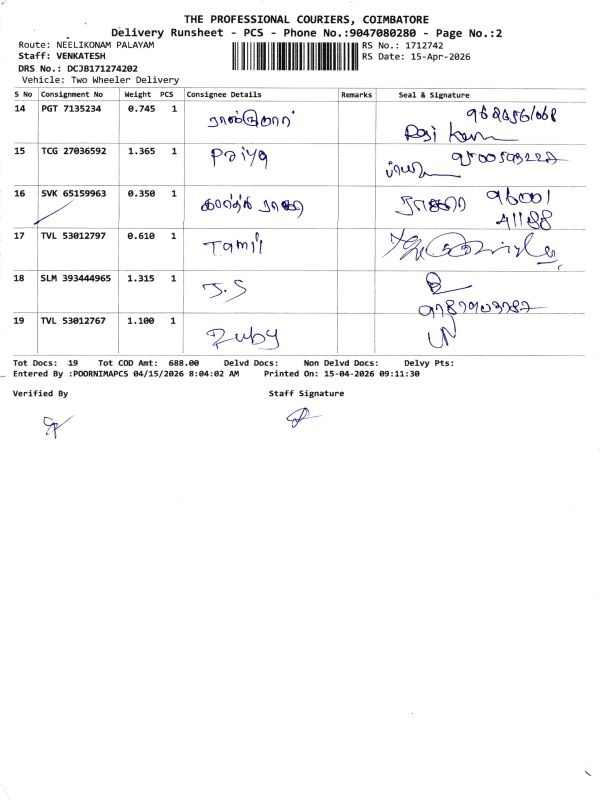 THE PROFESSIONAL COURIERS, COIMBATORE
Delivery Runsheet - PCS - Phone No.:9047080280 - Page No.:2
Route: NEELIKONAM PALAYAM
RS No.: 1712742
Staff: VENKATESH
RS Date: 15-Apr-2026
DRS No.: DCJB171274202
Vehicle: Two Wheeler Delivery
S No Consignment No Weight PCS Consignee Details Remarks Seal & Signature
14 PGT 7135234 0.745 1 ராஜ்குமார்
15 TCG 27036592 1.365 1 Priya
16 SVK 65159963 0.350 1 96001
41188
17 TVL 53012797 0.610 1 Tamil
18 SLM 393444965 1.315 1 J.S
19 TVL 53012767 1.100 1 Ruby
Tot Docs: 19 Tot COD Amt: 688.00 Delvd Docs: Non Delvd Docs: Delvy Pts:
Entered By :POORNIMAPCS 04/15/2026 8:04:02 AM Printed On: 15-04-2026 09:11:30
Verified By Staff Signature